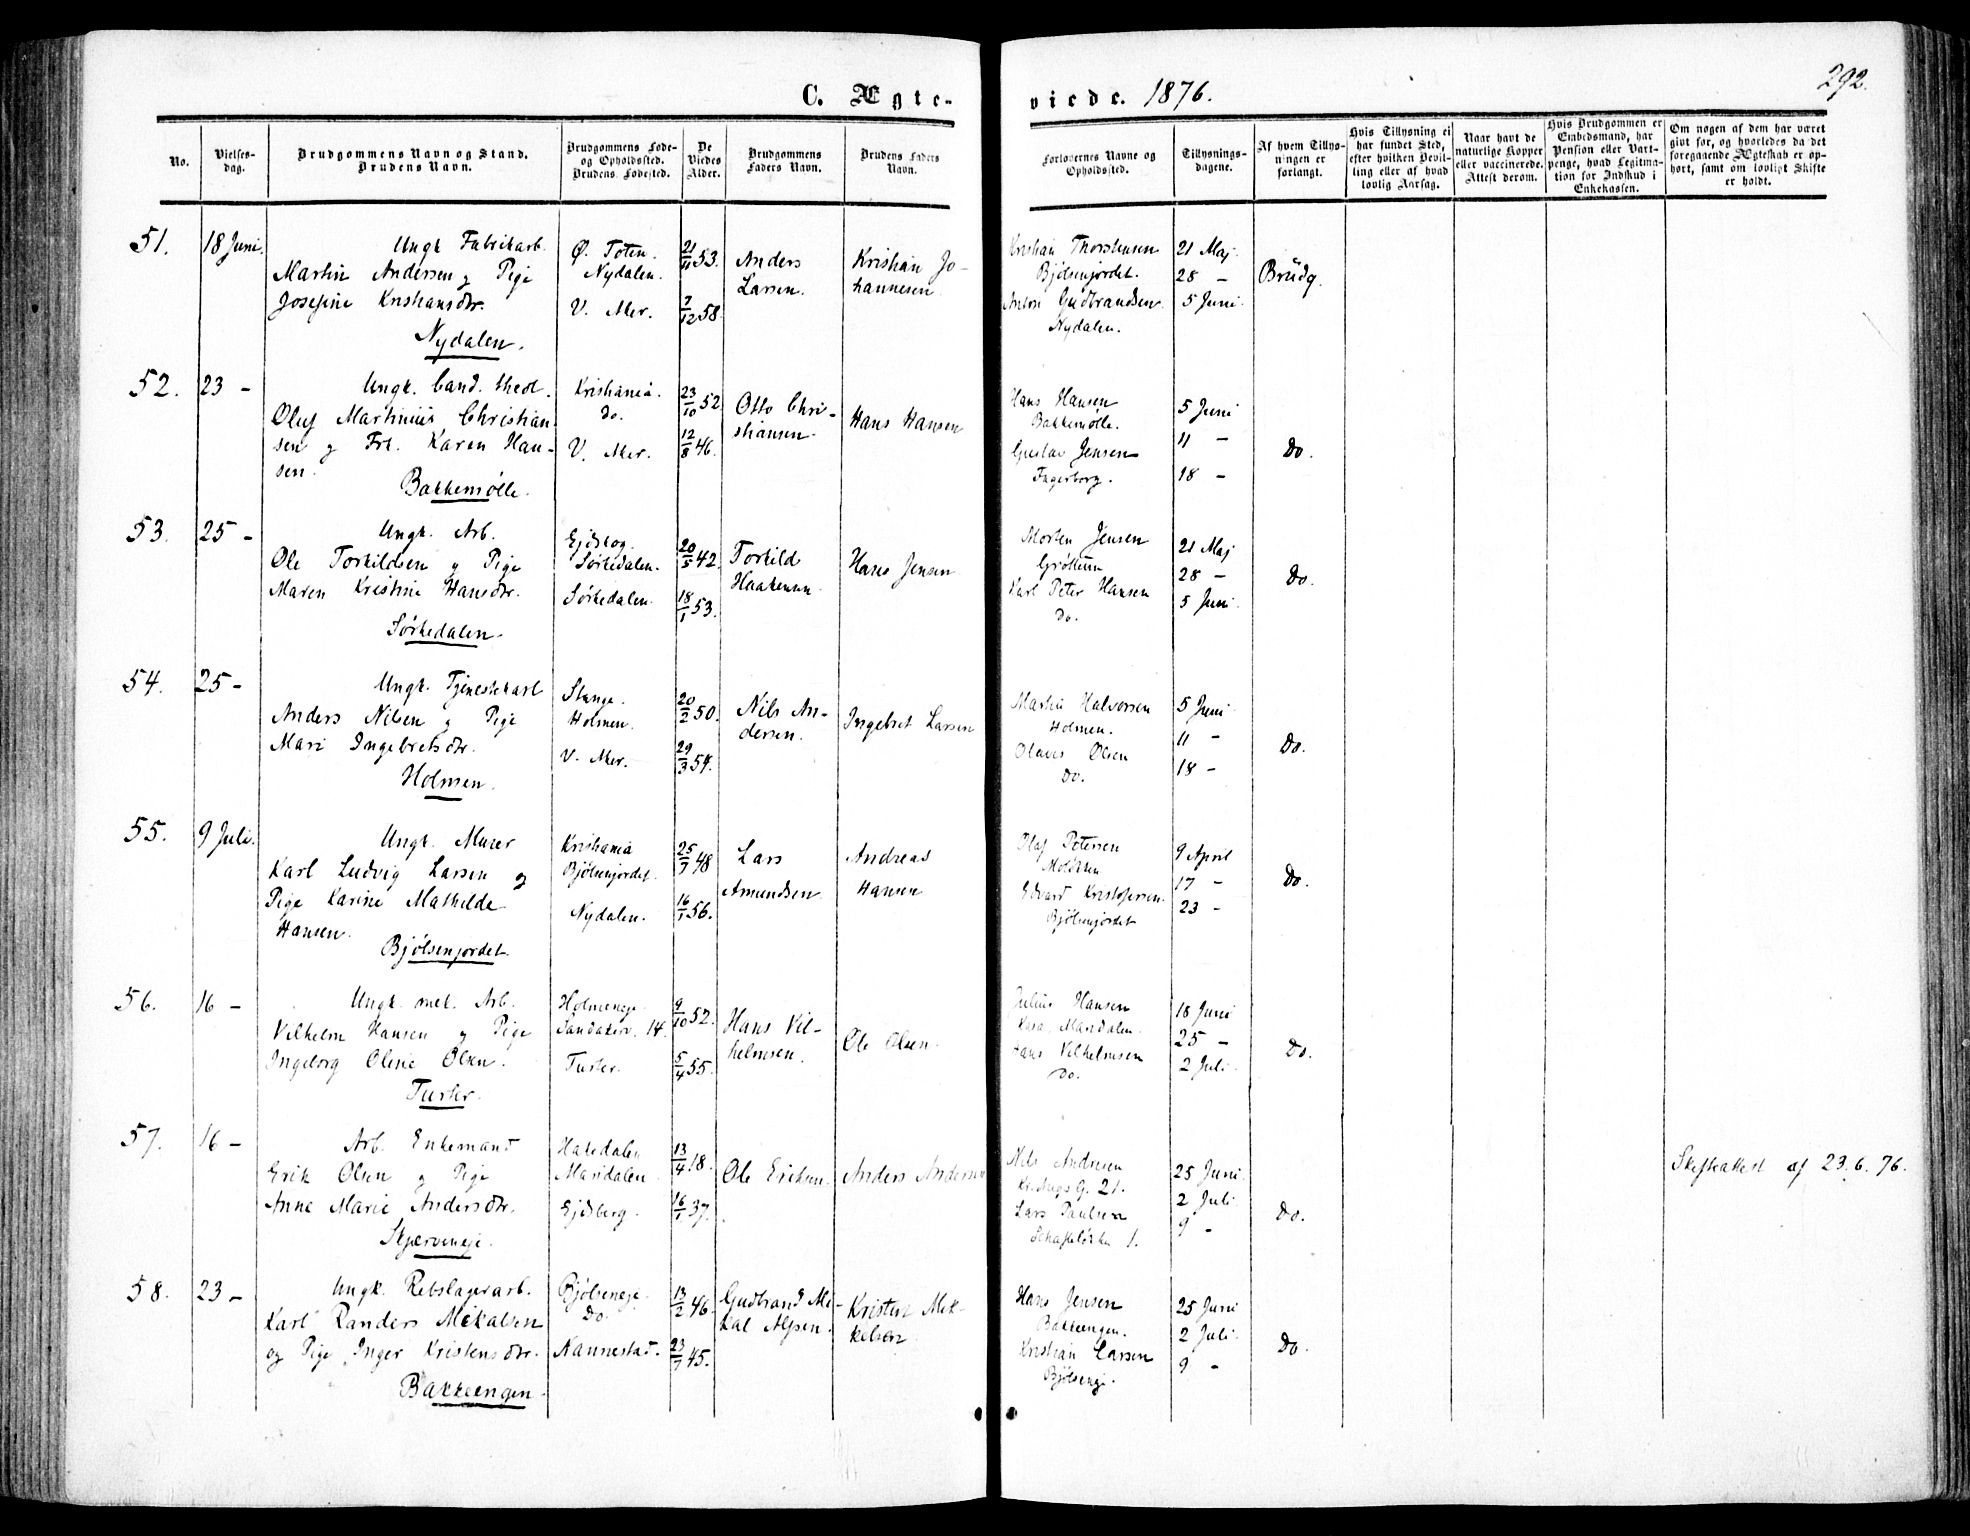 C. Ægte-
viede. 1876.
292.
No.
Vielses-
dag.
Brudgommens Navn og Stand.
Brudens Navn.
Brudgommens Føde-
og Opholdssted.
Brudens Fødested.
De
Viedes
Alder.
Brudgommens
Faders Navn.
Brudens Faders
Navn.
Forlovernes Navne og
Opholdssted.
Tillysnings-
dagene.
Af hvem Tillys-
ningen er
forlangt.
Hvis Tillysning ei
har fundet Sted,
efter hvilken Bevil-
ling eller af hvad
lovlig Aarsag.
Naar havt de
naturlige Kopper
eller vaccinerede.
Attest derom.
Hvis Brudgommen er
Embedsmand, har
Pension eller Vart-
penge, hvad Legitima-
tion for Indskud i
Enkekassen.
Om nogen af dem har været
givt før, og hvorledes da det
foregaaende Ægteskab er op-
hørt, samt om lovligt Skifte
er holdt.
51.
18 Juni.
Ungk. Fabrikarb.
Martin Andersen og Pige
Josefine Kristiansdtr.
Nydalen.
Ø. Toten.
Nydalen.
V. Aker.
21/11 53.
7/12 58.
Anders
Larsen.
Kristian Jo-
hannesen.
Kristian Thorstensen
Bjølsenjordet.
Anton Gudbrandsen.
Nydalen.
21 Maj
28 –
5 Juni.
Brudg.
52.
23 –
Ungk. Cand. theol.
Oluf Martinius Christian-
sen og Frk. Karen Han-
sen.
Bakkemølle.
Kristiania.
do.
V. Aker.
23/10 52
12/8 46.
Otto Chri-
stiansen.
Hans Hansen
Hans Hansen
Bakkemølle.
Gustav Jensen
Fagerborg.
5 Juni
11 –
18 –
Do.
53.
25 –
Ungk. Arb.
Ole Torkildsen og Pige
Maren Kristine Hansdtr.
Sørkedalen.
Ejdskog.
Sørkedalen.
Sørkedalen.
20/5 42.
18/1 53.
Torkild
Haakensen.
Hans Jensen
Morten Jensen
Grøttum
Karl Peter Hansen
Do.
21 Maj
28 –
5 Juni.
Do.
54.
25 –
Ungk. Tjenestekarl
Anders Nilsen og Pige
Mari Ingebretsdtr.
Holmen.
Stange.
Holmen.
V. Aker.
20/2 50.
29/3 54.
Nils An-
dersen.
Ingebret Larsen
Martin Halvorsen
Holmen.
Olaves Olsen
Do.
5 Juni
11 –
18 –
Do.
55.
9 Juli.
Ungk. Murer
Karl Ludvig Larsen og
Pige Karine Mathilde
Hansen.
Bjølsenjordet.
Kristiania
Bjølsenjordet.
Nydalen.
25/7 48
16/1 56.
Lars
Amundsen
Andreas
Hansen
Olaf Petersen
Edvard Kristofersen.
Bjølsenjordet
9 April
17 –
23 –
Do.
56.
16 –
Ungk. mel. Arb.
Vilhelm Hansen og Pige
Ingeborg Oline Olsen.
Turter.
Holmeneje.
Sandakerv. 14.
Turter.
9/10 52.
5/4 55.
Hans Vil-
helmsen.
Ole Olsen.
Julius Hansen
Maridalen.
Hans Vilhelmsen
Do.
18 Juni
25 –
2 Juli.
Do.
57.
16 –
Arb. Enkemand
Erik Olsen og Pige
Anne Marie Andersdtr.
Skjærveneje.
Hakedalen
Maridalen.
Ejdsberg.
13/4 18.
16/1 37.
Ole Eriksen.
Anders Andersen
Nils Andresen
G. 21.
Lars Paulsen
1.
25 Juni.
2 Juli.
9 –
Do.
Skifteattest af 23.6.76.
58.
23 –
Ungk. Rebslagerarb.
Karl Randers Mikalsen
og Pige Inger Kristensdtr.
Bakkeengen.
Bjølseneje.
Do.
Nannestad.
13/2 46.
23/7 45.
Gudbrand Mi-
kal Alfsen.
Kristen Mik-
kelsen
Hans Jensen
Bakkeengen.
Kristian Larsen
Bjølsenej.
25 Juni
2 Juli.
9 –
Do.